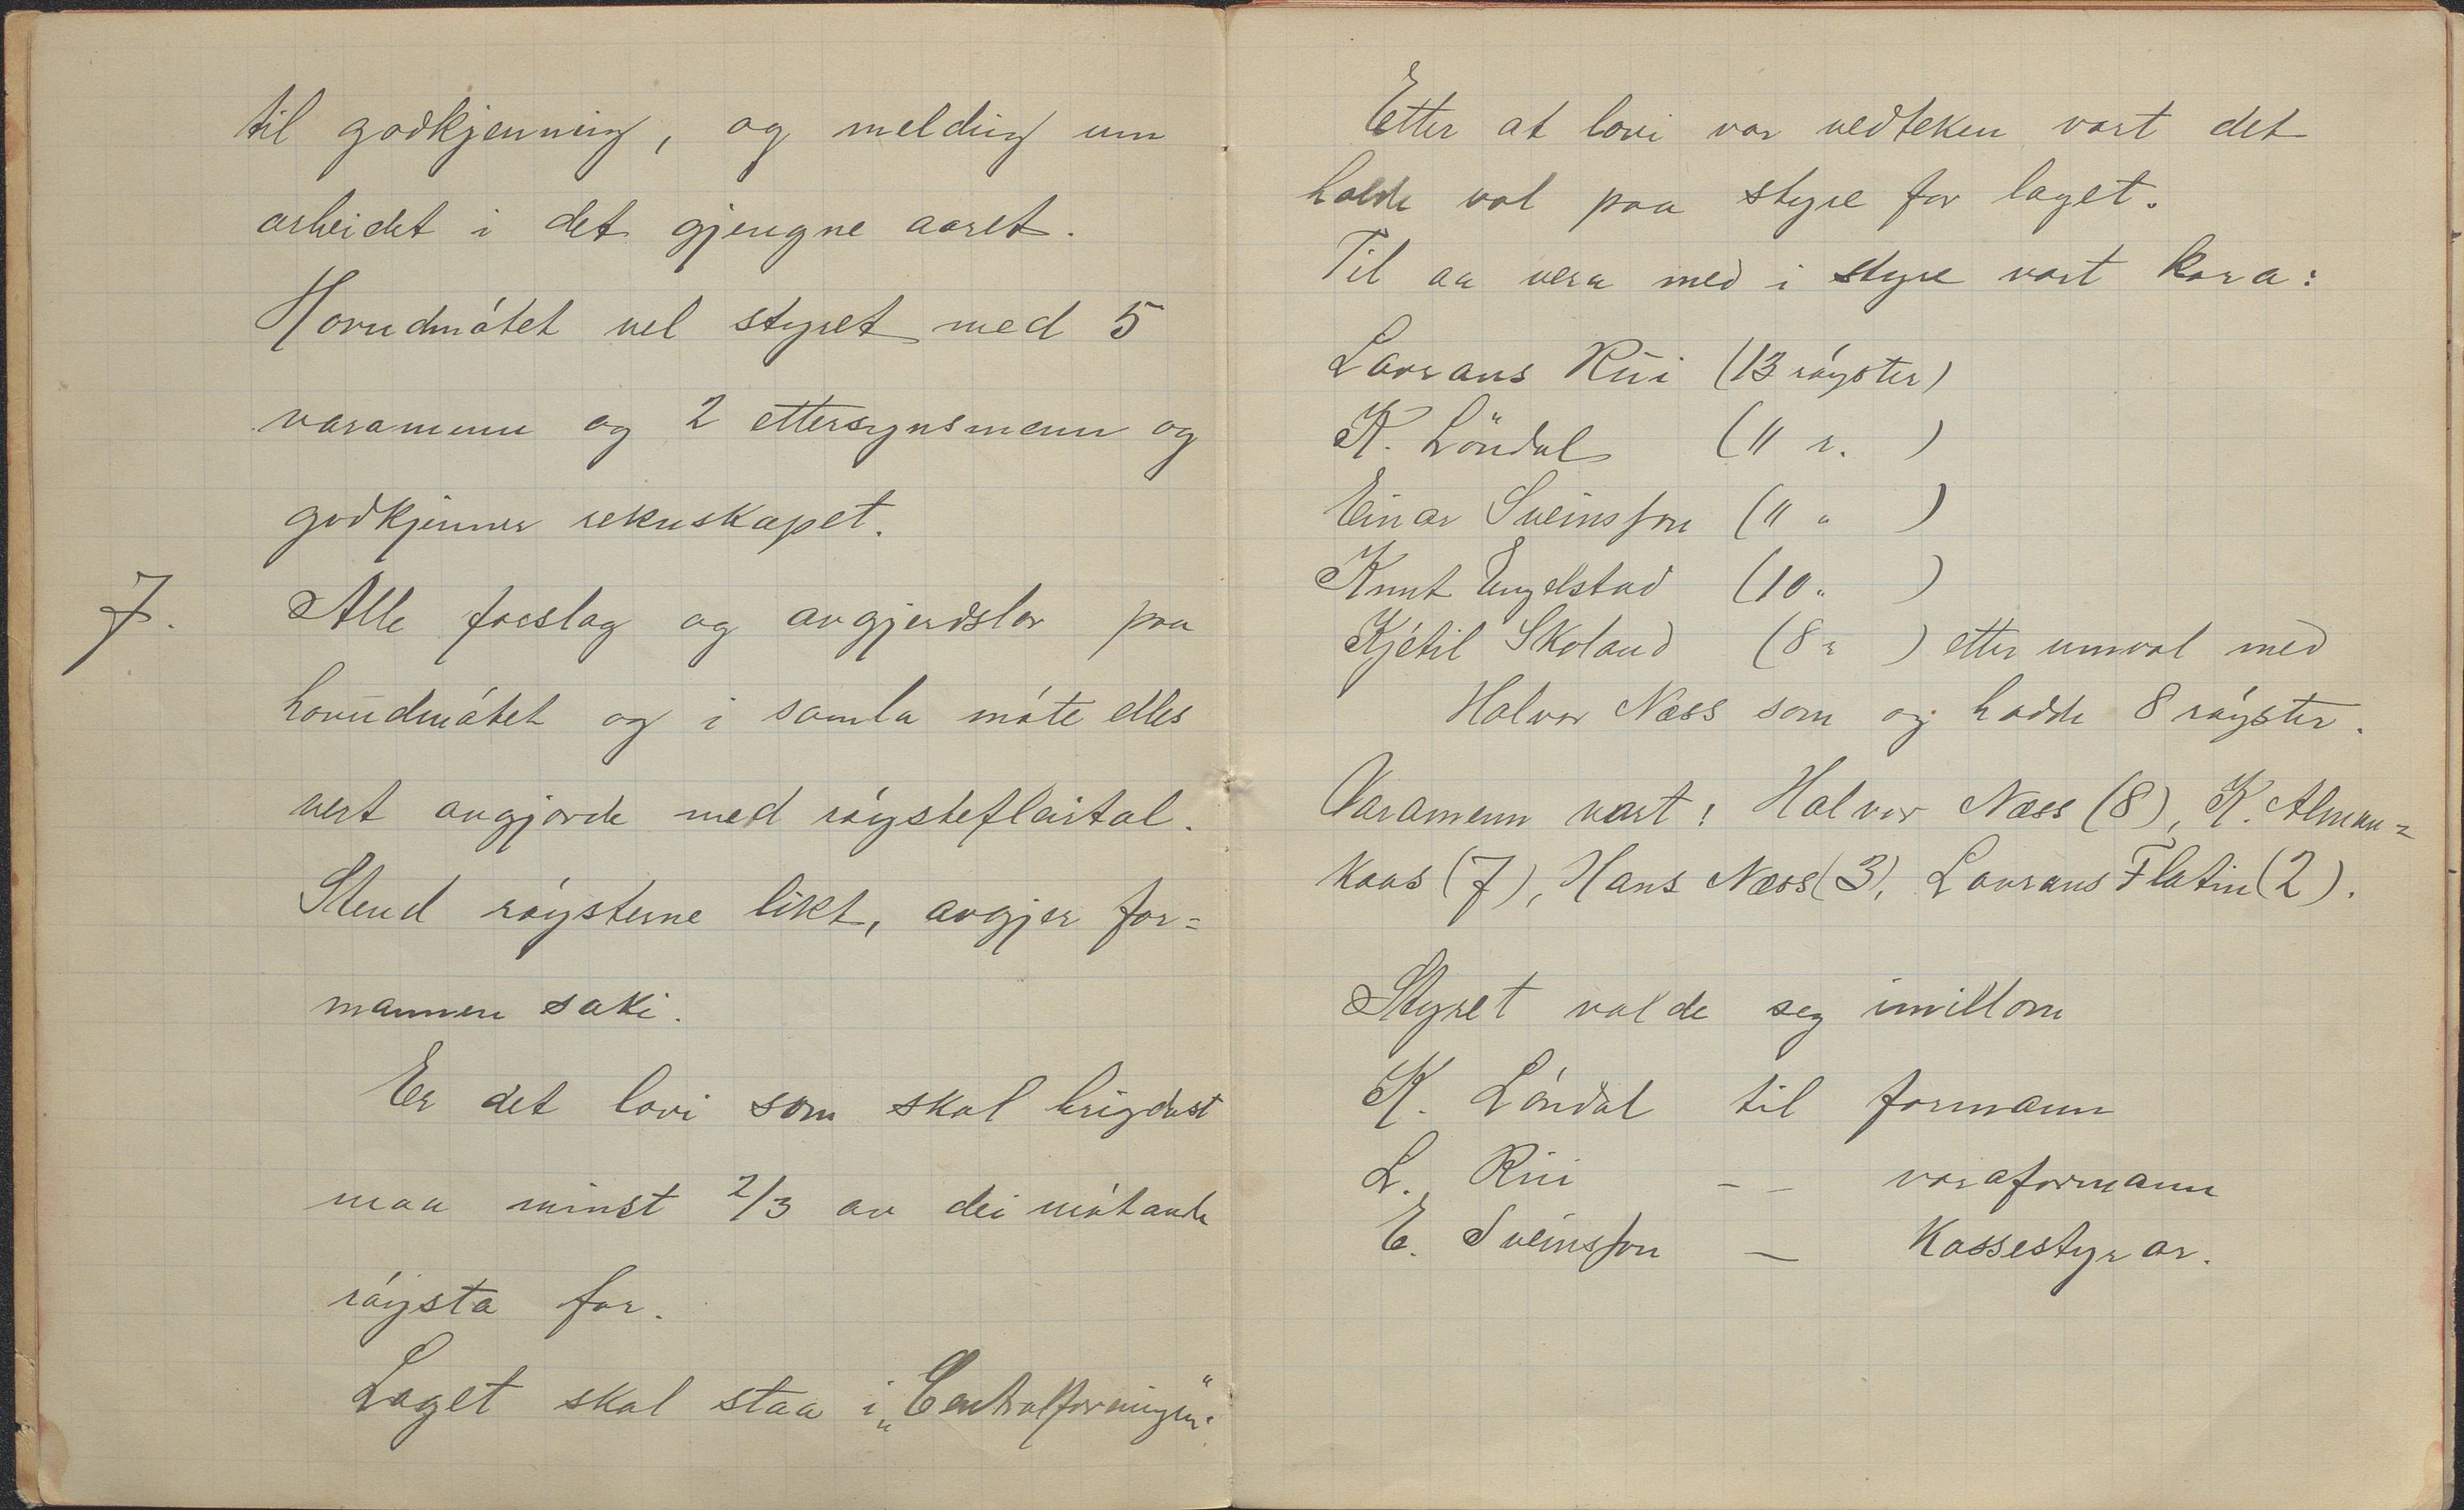 til godkjenning, og melding um
arbeidet i det gjengne aaret.
Hovudmótet vel styret med 5
varamenn og 2 ettersynsmenn og
godkjenner rekneskapet.
7. Alle forslag og avgjerdslor paa
hovudmótet og i samla móte elles
vert avgjorde med róystefleirtal.
Stend róysterne likt, avgjer for=
mannen saki.
Er det lovi som skal brigdast
maa minst 2/3 av dei mótande
róysta for.
Laget skal staa i „Centralforeningen“.
Etter at lovi var vedteken vart det
halde val paa styre for laget.
Til aa vera med i styre vart kora:
Lavrans Rui (13 róyster)
K. Löndal (" r. )
Einar Sveinsson (" " )
Knut Engelstad (10 " )
Kjetil Skoland (8 r ) etter umval med
Halvor Næss som og hadde 8 róyster.
Varamenn vart: Halvor Næss (8), K. Alman=
kaas (7), Hans Næss (3), Lavrans Flatin (2).
Styret valde seg imillom
K. Lóndal til formann
L. Rui - - varaformann
E. Sveinsson — Kassestyrar.